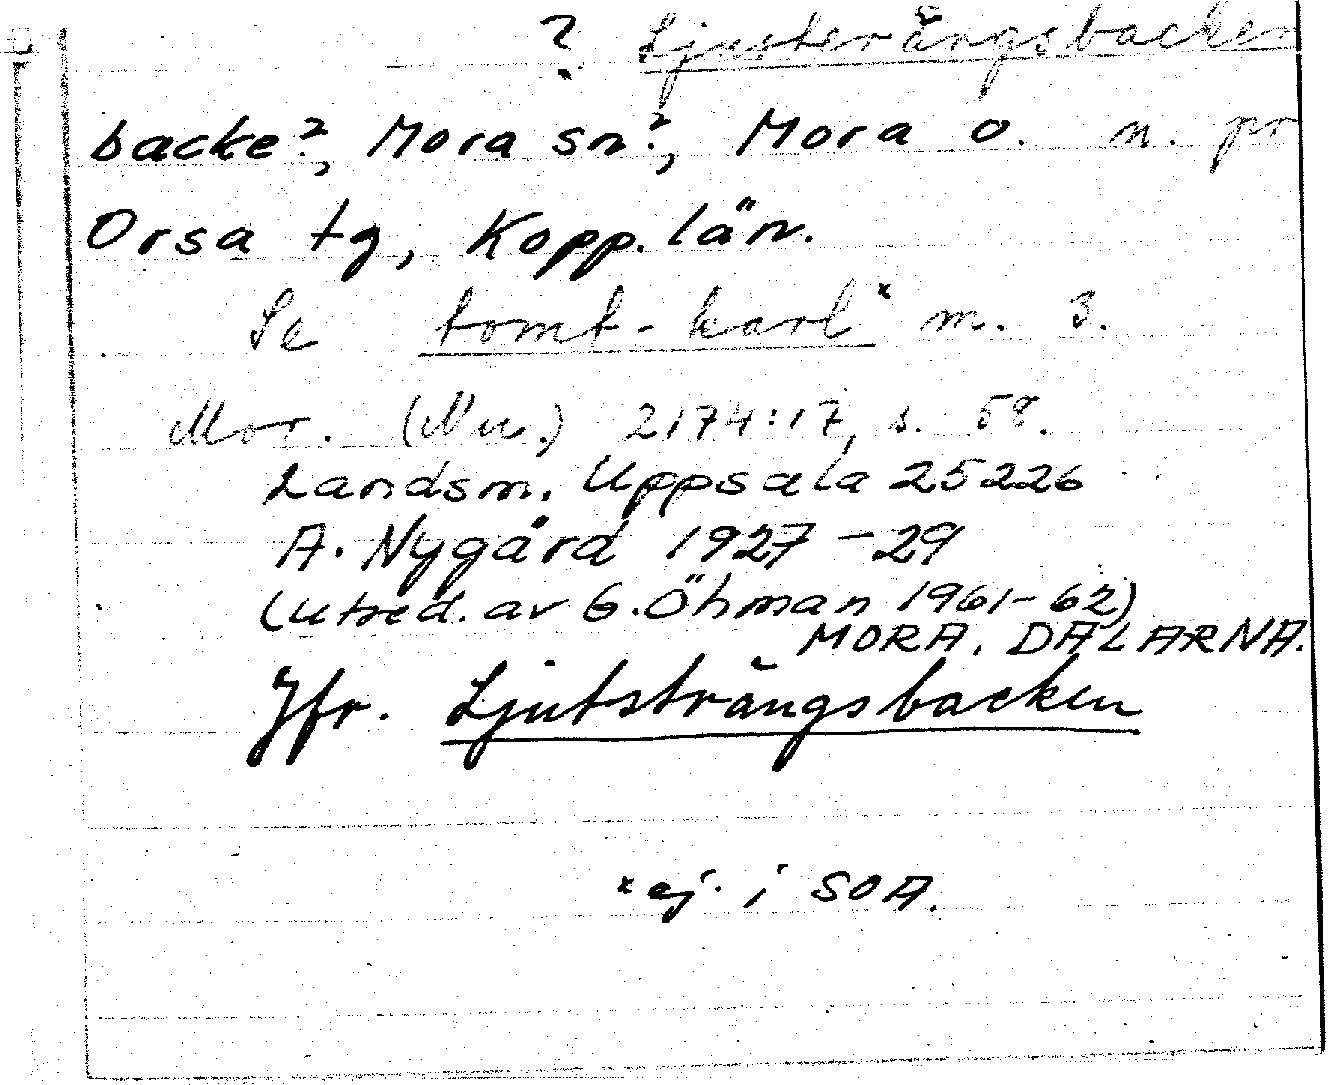 ? Ljusterängsbacken
backe?, Mora sn?, Mora o. n. pr
Orsa tg, Kopp. län.
Se tomt-karl x m. 3.
Mor. (Nu.) 2174:17, s. 58.
Landsm. Uppsala 25226
A. Nygård 1927-29
(Utred. av G. Öhman 1961-62)
MORA. DALARNA.
Jfr. Ljutsträngsbacken
x ej. i SOA.